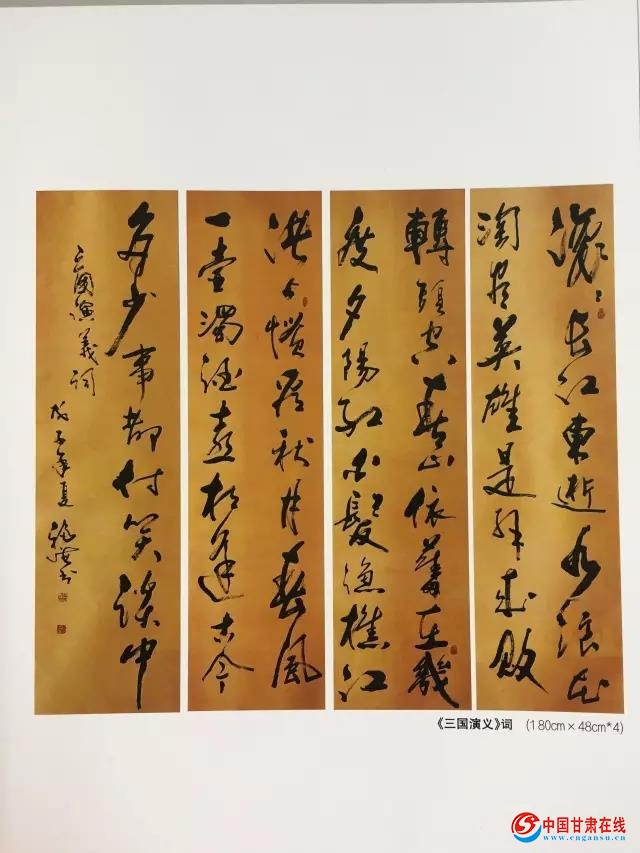 滚滚长江東逝水浪花
淘尽英雄是非成败
轉頭空青山依舊在幾
度夕陽红白髮漁樵江
渚上惯看秋月春風
一壶濁酒喜相逢古今
多少事都付笑談中
三國演義词
戊子年夏
《三国演义》词 (180cm×48cm*4)
中国甘肃在线
www.cngansu.cn